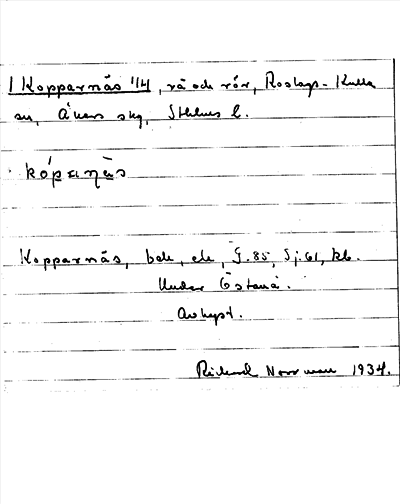 1 Kopparnäs 1/4, rå och rör, Roslags-Kulla
sn, Åkers skg, Sthlms l.
kópaṇàs
Kopparnäs, bok, ek, G. 85, Sj. 61, kb.
Under Östanå.
Avhyst.
Rickard Norrman 1934.